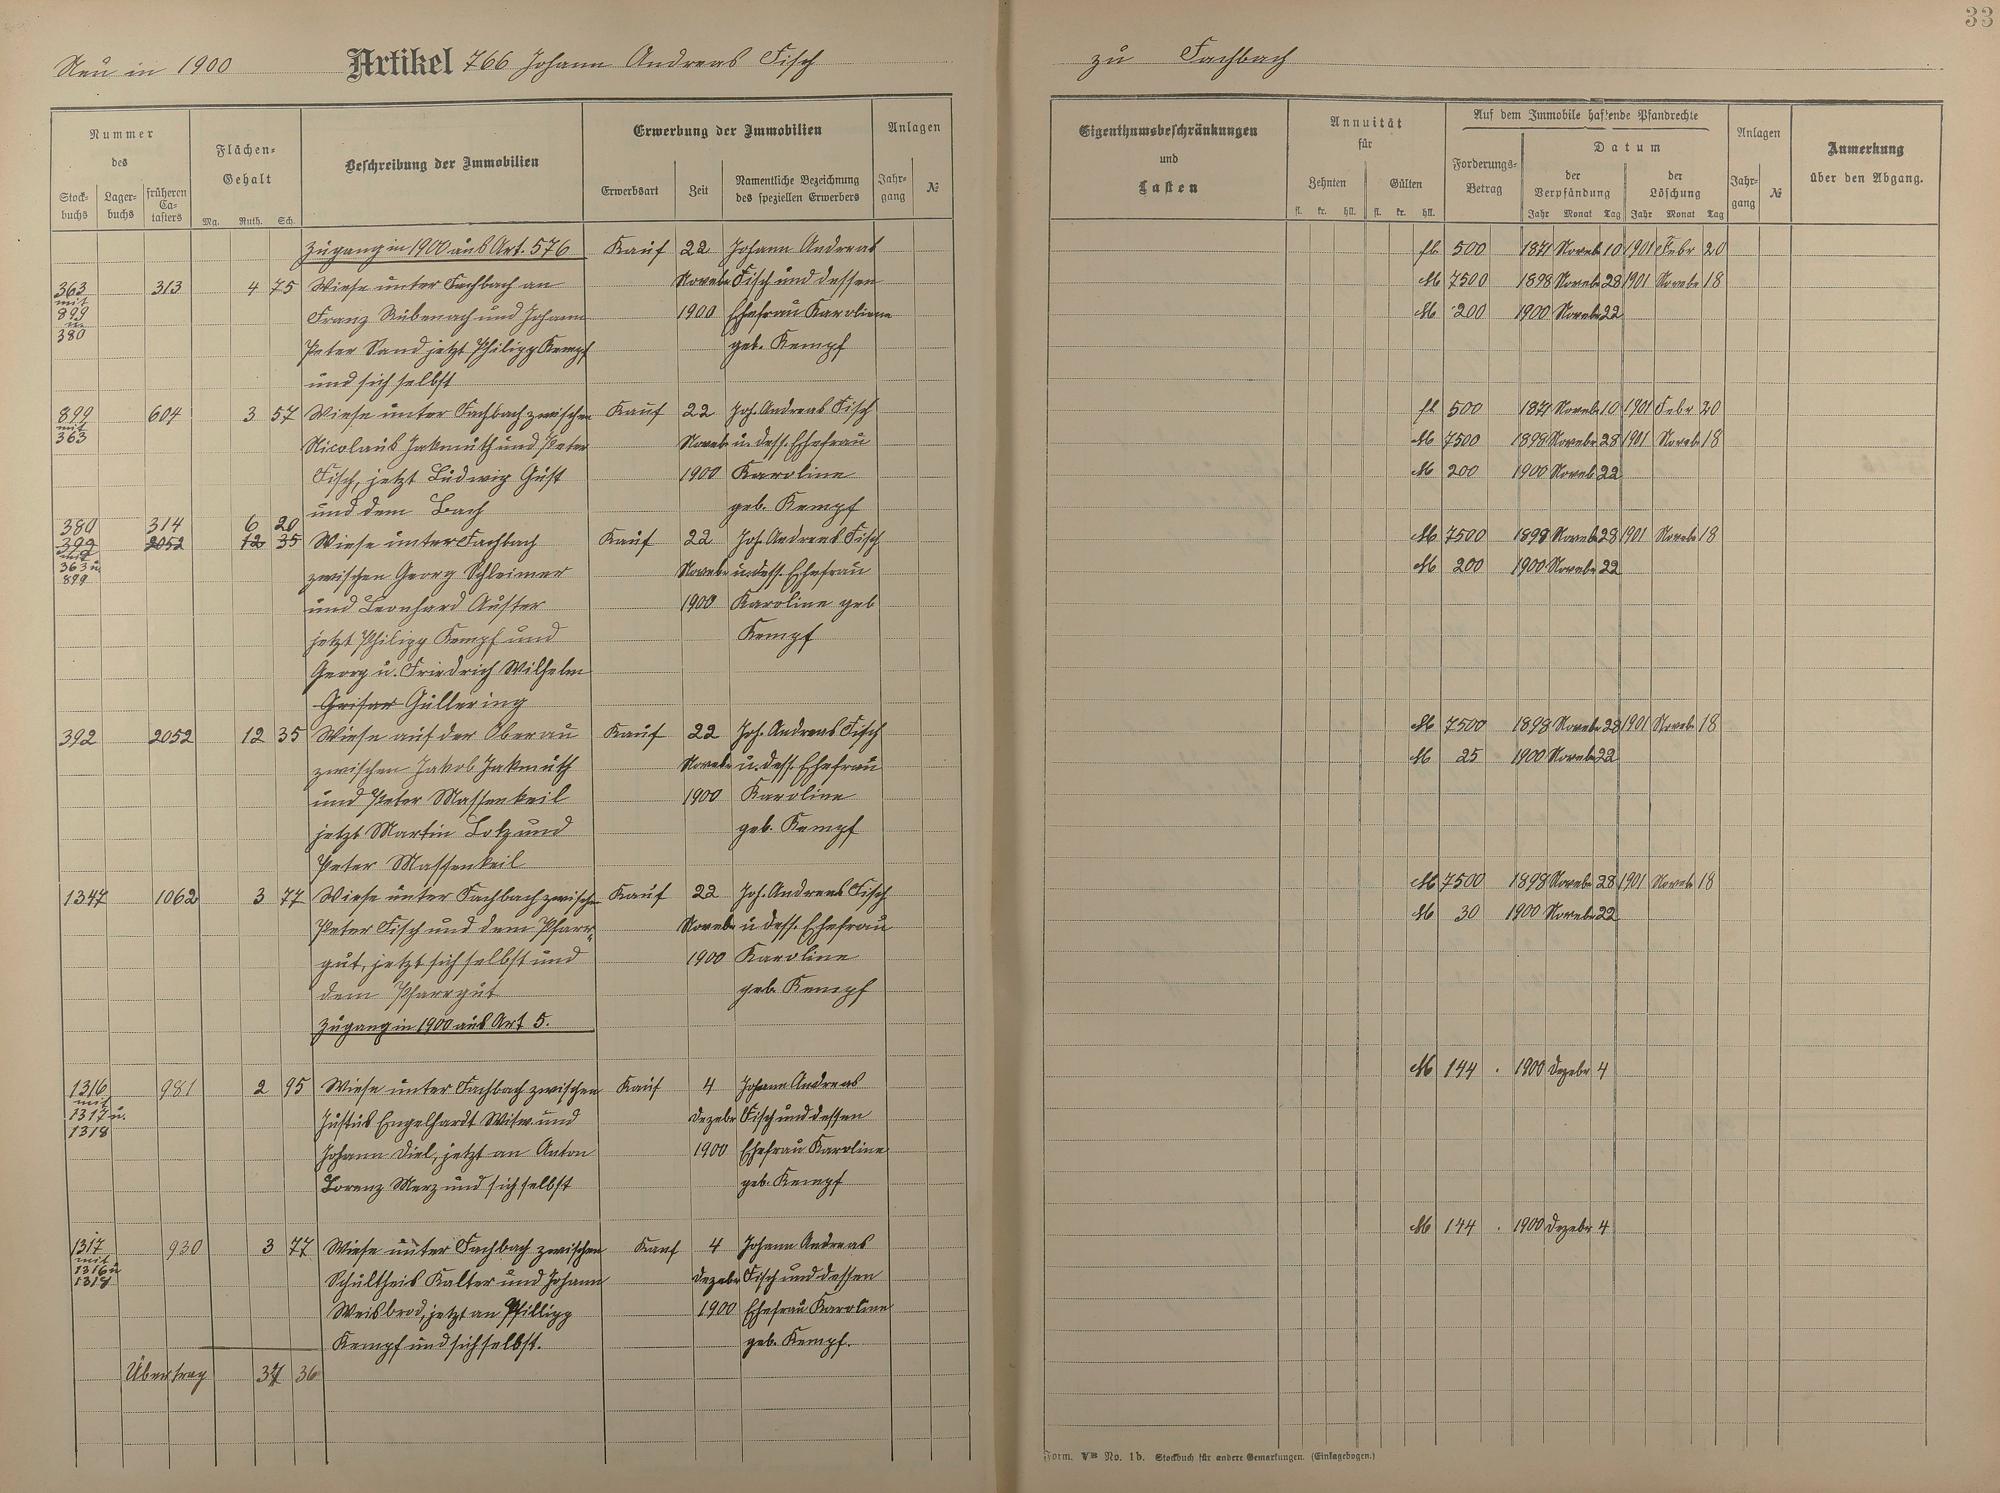 33
Neu in 1900 Artikel 766 Johann Andreas Fisch
zu Fachbach
Nummer des
Stockbuchs Lagerbuchs früheren Catasters
Flächen-Gehalt
Mg. Ruth. Sch.
Beschreibung der Immobilien
Erwerbung der Immobilien
Erwerbsart Zeit Namentliche Bezeichnung des speziellen Erwerbers
Anlagen
Jahrgang №
Eigenthumsbeschränkungen und Lasten
Annuität für
Zehnten Gülten
fl. kr. hll. fl. kr. hll.
Auf dem Immobile haftende Pfandrechte
Forderungs-Betrag
Datum
der Verpfändung der Löschung
Jahr Monat Tag Jahr Monat Tag
Anlagen
Jahrgang №
Anmerkung über den Abgang.
Zugang in 1900 aus Art. 576 Kauf 22 Johann Andreas
363 313 4 75 Wiese unter Fachbach an Novebr Fisch und dessen
mit
899 Franz Rübenach und Johann 1900 Ehefrau Karoline
u.
380 Peter Sand jetzt Philipp Kempf geb. Kempf
und sich selbst
899 604 3 57 Wiese unter Fachbach zwischen Kauf 22 Joh. Andreas Fisch
mit
363 Nicolaus Jakmuth und Peter Novebr u. dess. Ehefrau
Fisch, jetzt Ludwig Güst 1900 Karoline
und dem Bach geb. Kempf
380 314 6 20
392 2052 12 35 Wiese unter Fachbach Kauf 22 Joh. Andreas Fisch
mit
363 u. zwischen Georg Schleimer Novebr u. dess. Ehefrau
899
und Leonhard Auster 1900 Karoline geb
jetzt Philipp Kempf und Kempf
Georg u. Friedrich Wilhelm
Grisar Güllering
392 2052 12 35 Wiese auf der Oberau Kauf 22 Joh. Andreas Fisch
zwischen Jakob Jakmuth Novebr u. dess. Ehefrau
und Peter Massenkeil 1900 Karoline
jetzt Martin Lotz und geb. Kempf
Peter Massenkeil
1347 1062 3 77 Wiese unter Fachbach zwischen Kauf 22 Joh. Andreas Fisch
Peter Fisch und dem Pfarr- Novebr u dess. Ehefrau
gut, jetzt sich selbst und 1900 Karoline
dem Pfarrgut geb. Kempf
Zugang in 1900 aus Art 5.
1316 981 2 95 Wiese unter Fachbach zwischen Kauf 4 Johann Andreas
mit
1317 u. Justus Engelhardt Witw. und Dezebr Fisch und dessen
1318
Johann Diel, jetzt an Anton 1900 Ehefrau Karoline
Lorenz Merz und sich selbst geb. Kempf
1317 930 3 77 Wiese unter Fachbach zwischen Kauf 4 Johann Andreas
mit
1316 u
1318 Schultheis Kalter und Johann Dezebr Fisch und dessen
Weisbrod, jetzt an Phillipp 1900 Ehefrau Karoline
Kempf und sich selbst. geb. Kempf.
Übertrag 37 36
fl. 500 1871 Novebr 10 1901 Febr 20
M 7500 1898 Novebr 28 1901 Novebr 18
M 200 1900 Novebr 22
fl 500 1871 Novebr 10 1901 Febr 20
M 7500 1898 Novebr 28 1901 Novebr 18
M 200 1900 Novebr 22
M 7500 1898 Novebr 28 1901 Novebr 18
M 200 1900 Novebr 22
M 7500 1898 Novebr 28 1901 Novebr 18
M 25 1900 Novebr 22
M 7500 1898 Novebr 28 1901 Novebr 18
M 30 1900 Novebr 22
M 144 . 1900 Dezebr 4
M 144 . 1900 Dezebr 4
Form. VB No. 1b. Stockbuch für andere Gemarkungen. (Einlagebogen.)